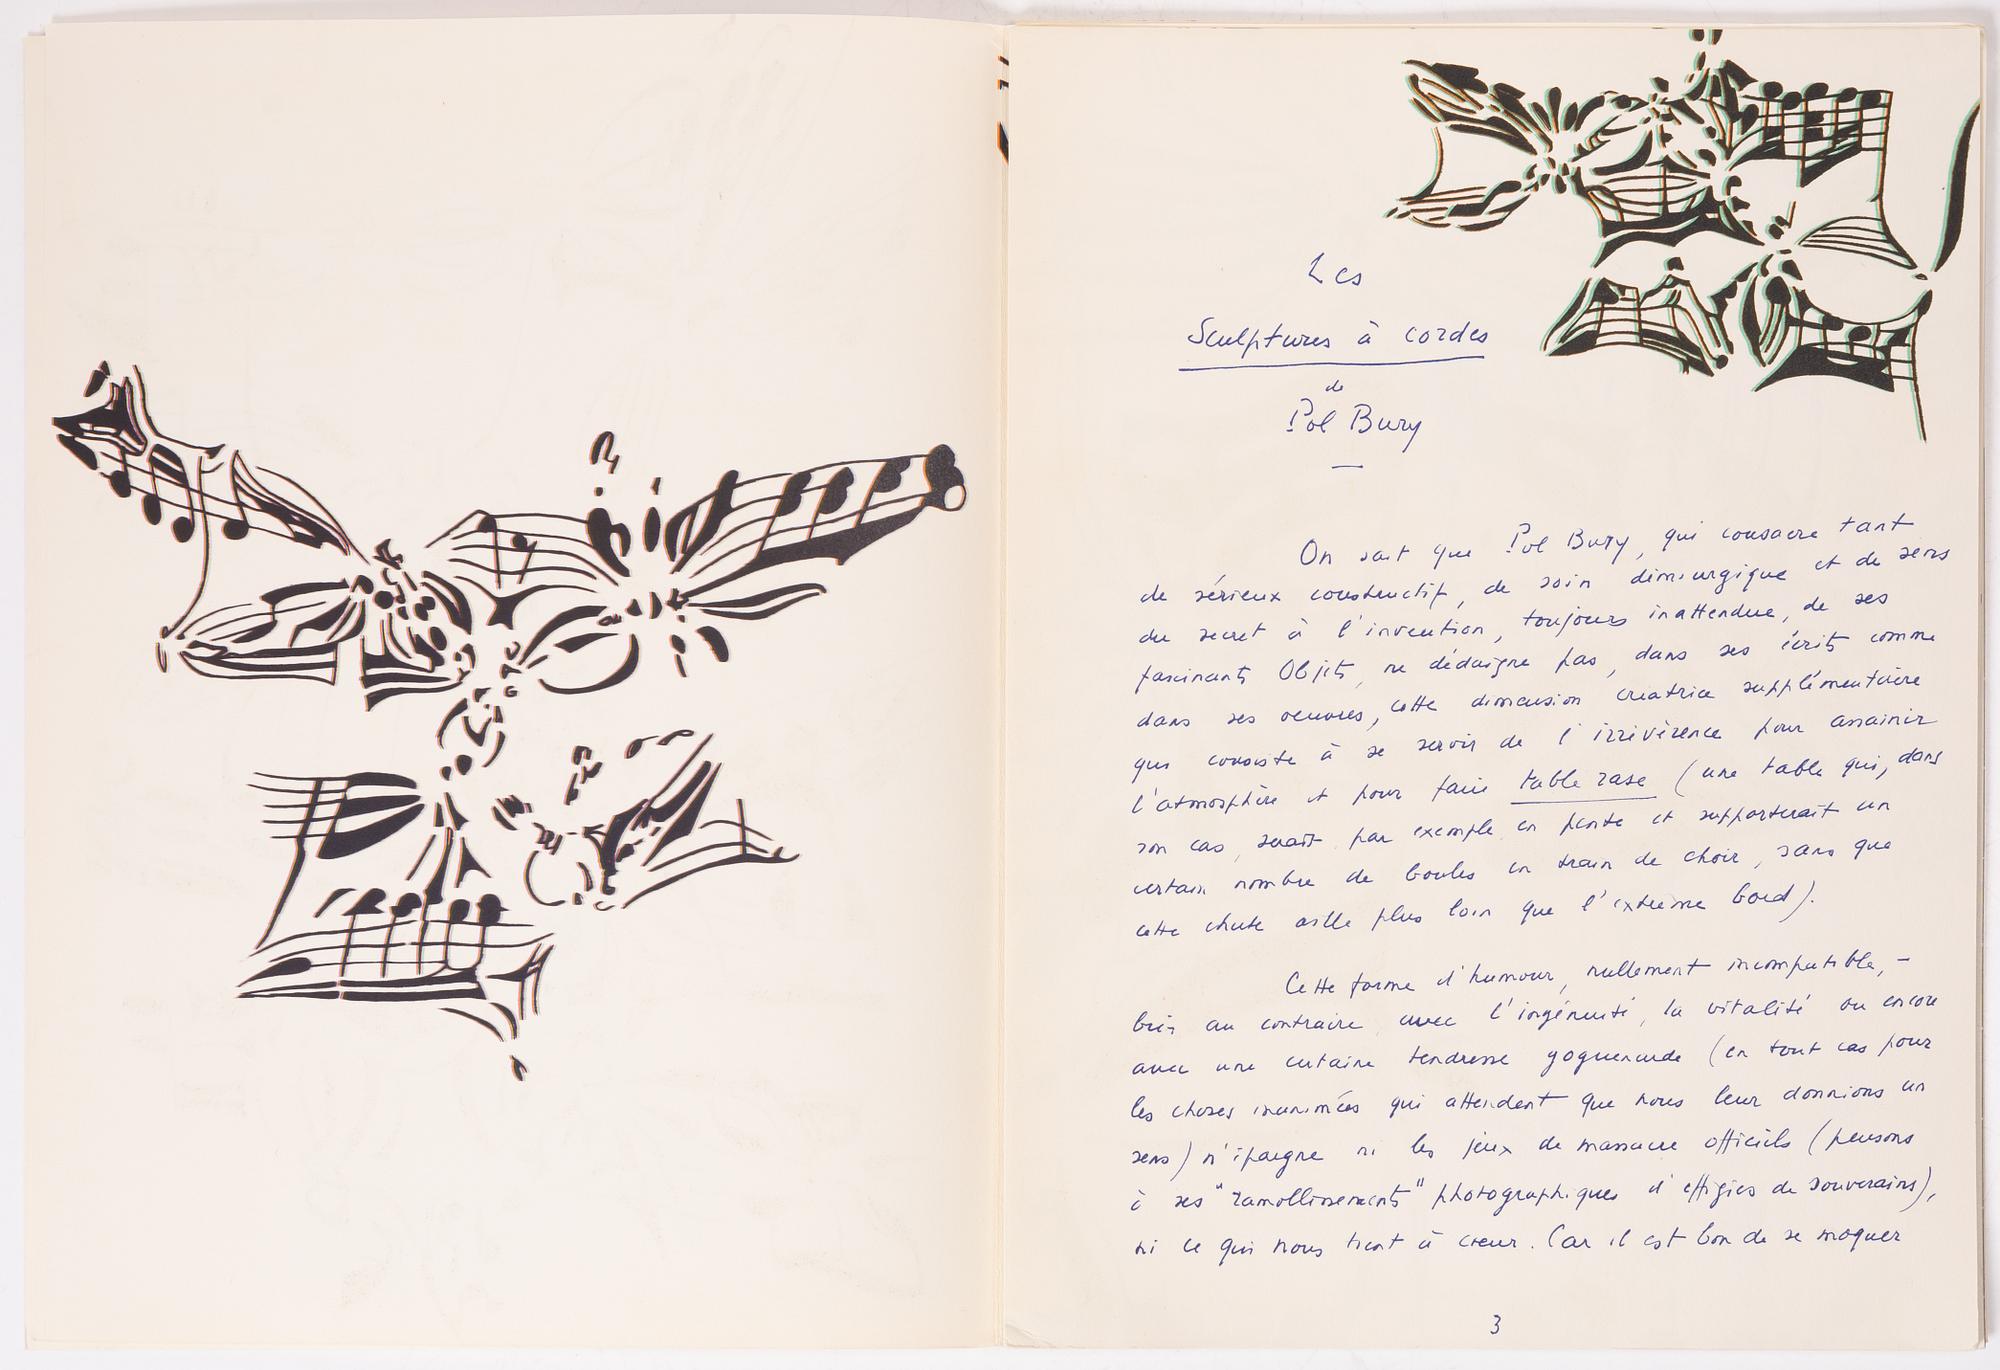 Les
Sculptures à cordes
de
Pol Bury
On sait que Pol Bury, qui consacre tant
de sérieux constructif, de soin démiurgique et de sens
du secret à l'invention, toujours inattendue, de ses
fascinants Objets, ne dédaigne pas, dans ses écrits comme
dans ses oeuvres, cette dimension créatrice supplémentaire
qui consiste à se servir de l'irrévérence pour assainir
l'atmosphère et pour faire table rase (une table qui, dans
son cas, serait par exemple en pente et supporterait un
certain nombre de boules en train de choir, sans que
cette chute aille plus loin que l'extrême bord).
Cette forme d'humour, nullement incompatible, –
bien au contraire avec l'ingénuité, la vitalité ou encore
avec une certaine tendresse goguenarde (en tout cas pour
les choses inanimées qui attendent que nous leur donnions un
sens) n'épargne ni les jeux de massacre officiels (pensons
à ses "ramollissements" photographiques d'effigies de souverains),
ni ce qui nous tient à coeur. Car il est bon de se moquer
3